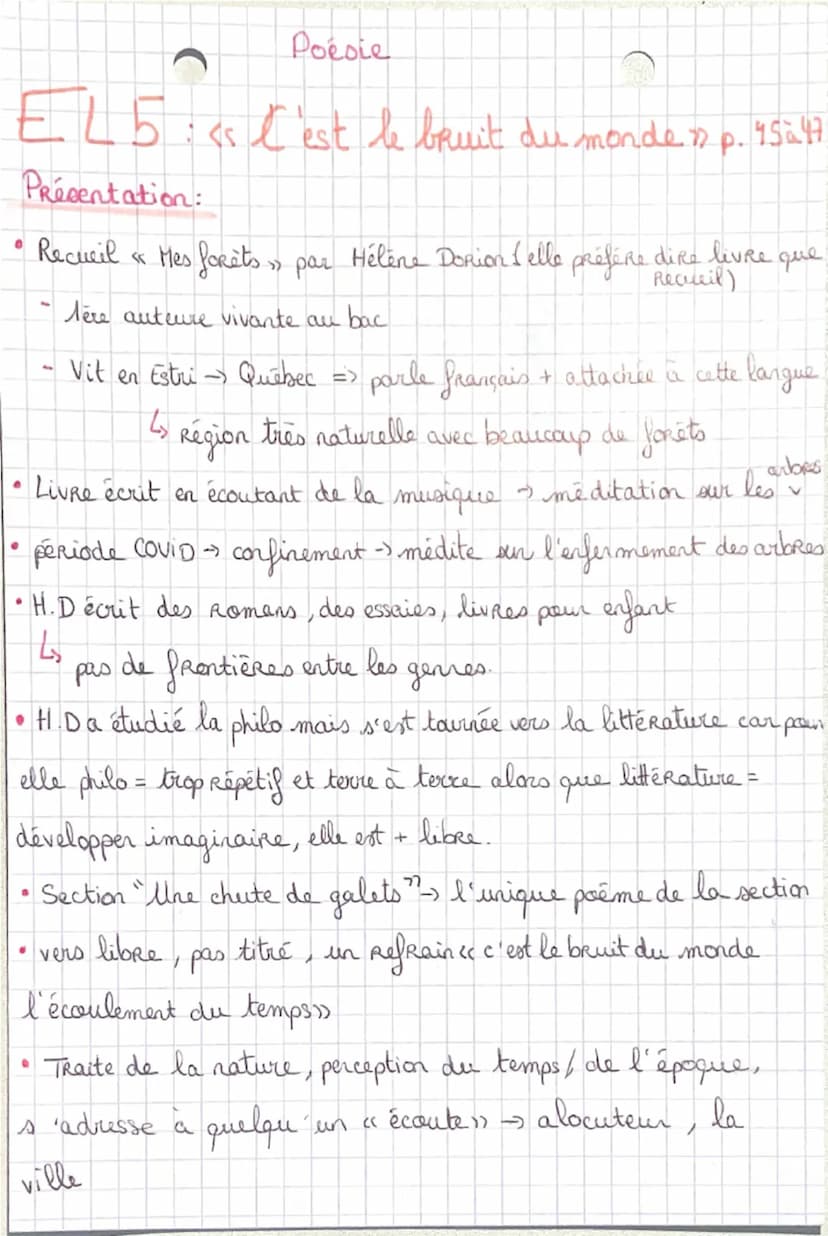 Poésie
EL5 : « C'est le bruit du monde » p. 45 à 47
Présentation :
• Recueil « Mes forêts » par Hélène Dorion (elle préfère dire livre que
recueil)
- 1ère auteure vivante au bac
- Vit en Estri → Québec => parle français + attachée à cette langue
↳ Région très naturelle avec beaucoup de forêts
• Livre écrit en écoutant de la musique → méditation sur les arbres
• période COVID → confinement → médite sur l'enfermement des arbres
• H.D écrit des romans, des essaies, livres pour enfant
↳ pas de frontières entre les genres.
• H.D a étudié la philo mais s'est tournée vers la littérature car pour
elle philo = trop répétif et terre à terre alors que littérature =
développer imaginaire, elle est + libre.
• Section "Une chute de galets" → l'unique poème de la section
• vers libre, pas titré, un refrain « c'est le bruit du monde
l'écoulement du temps »
• Traite de la nature, perception du temps / de l'époque,
s'adresse à quelqu'un « écoute » → alocuteur, la
ville